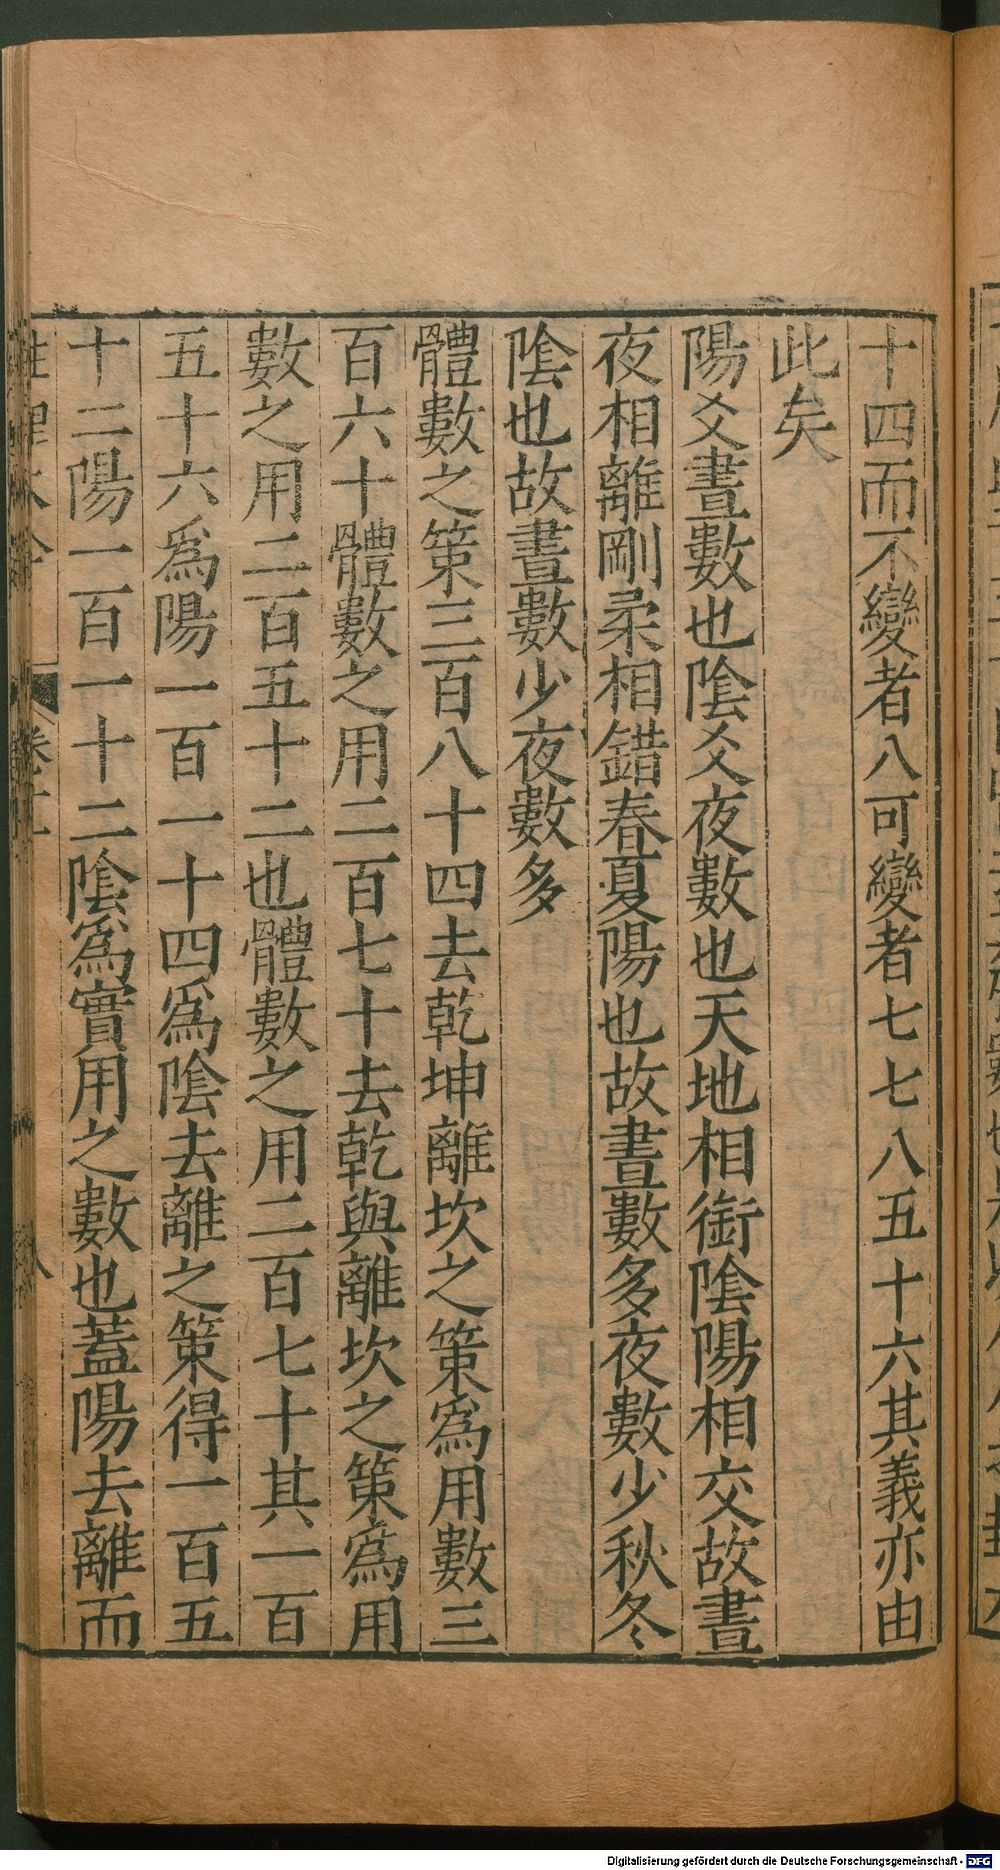 十四而不變者八可變者七七八五十六其義亦由
此矣
陽爻晝數也陰爻夜數也天地相銜陰陽相交故晝
夜相離剛柔相錯春夏陽也故晝數多夜數少秋冬
陰也故晝數少夜數多
體數之策三百八十四去乾坤離坎之策爲用數三
百六十體數之用二百七十去乾與離坎之策爲用
數之用二百五十二也體數之用二百七十其一百
五十六爲陽一百一十四爲陰去離之策得一百五
十二陽一百一十二陰爲實用之數也蓋陽去離而
Digitalisierung gefördert durch die Deutsche Forschungsgemeinschaft - DFG